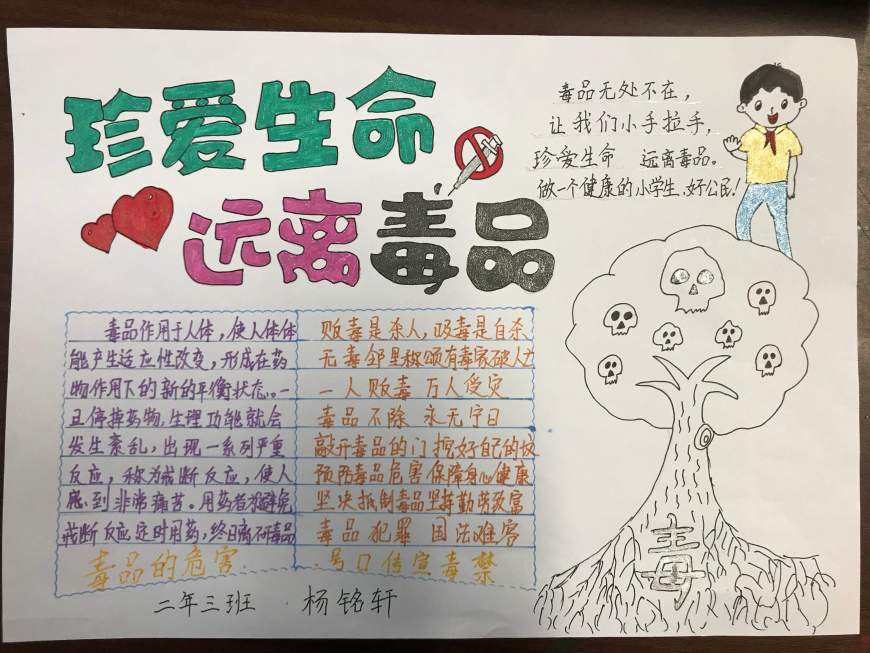 珍爱生命
远离毒品
毒品无处不在，
让我们小手拉手，
珍爱生命 远离毒品。
做一个健康的小学生、好公民！
毒品作用于人体，使人体体
能产生适应性改变，形成在药
物作用下的新的平衡状态。一
旦停掉药物，生理功能就会
发生紊乱，出现一系列严重
反应，称为戒断反应，使人
感到非常痛苦。用药者为避免
戒断反应定时用药，终日离不开毒品
毒品的危害
贩毒是杀人，吸毒是自杀
无毒邻里称颂有毒家破人亡
一人贩毒 万人受灾
毒品不除 永无宁日
敲开毒品的门 挖好自己的坟
预防毒品危害保障身心健康
坚决抵制毒品坚持勤劳致富
毒品犯罪 国法难容
号口传宣毒禁
毒
二年三班 杨铭轩